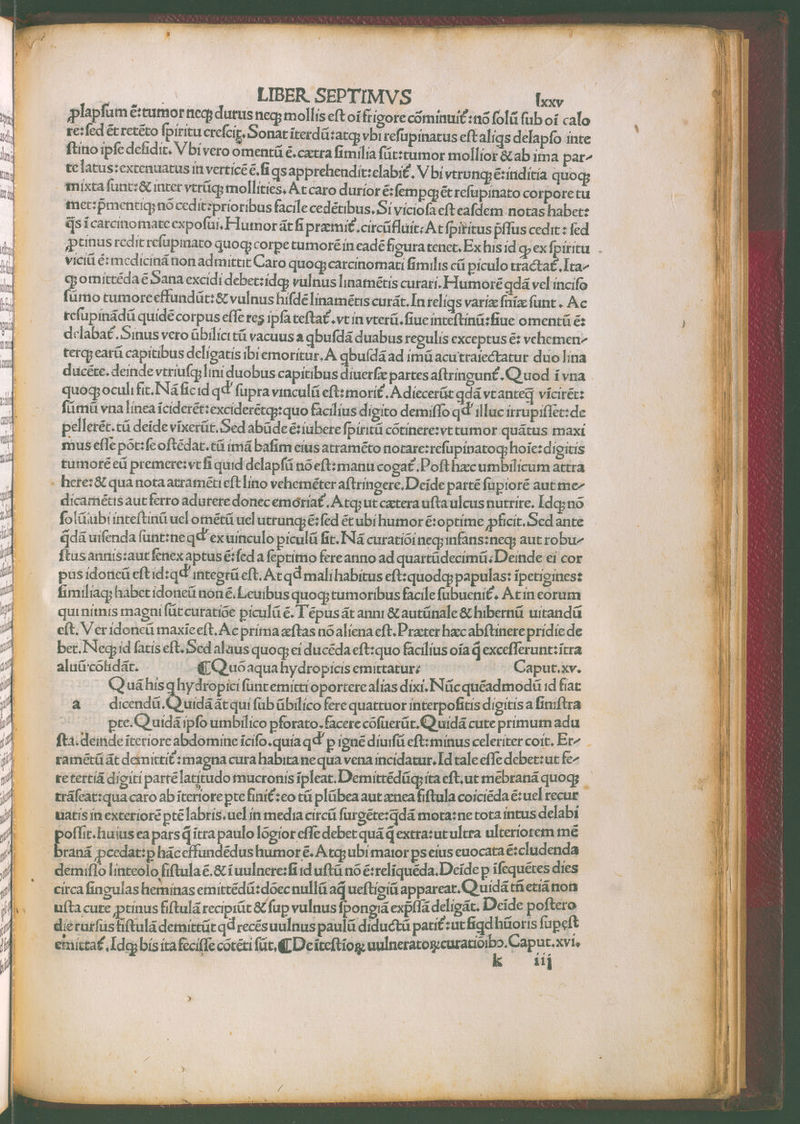 LIBER SEPTIMVS lxxv
ꝓlapſum ē:tumor neqꝫ durus neqꝫ mollis eſt oī frigore cōminuiť:nō ſolū ſub oī calo
re:ſed ēt retēto ſpiritu creſcit. Sonat īterdū:atqꝫ vbi reſupinatus eſt aliqs delapſo inte
ſtino ipſe deſidit. Vbi vero omentū ē.cætra ſimilia ſūt:tumor mollior & ab ima par-
te latus:extenuatus in verticē ē.ſi qs apprehendit:elabiť. Vbi vtrunqꝫ ē:inditia quoqꝫ
mixta ſunt:& inter vtrūqꝫ mollities. At caro durior ē:ſempqꝫ ēt reſupinato corpore tu
met:p̄mentiqꝫ nō cedit:prioribus facile cedētibus. Si vicioſa eſt eaſdem notas habet:
q̄s ī carcinomate expoſui. Humor āt ſi præmiť.circūfluit: At ſpiritus p̄ſſus cedit: ſed
ꝓtinus redit reſupinato quoqꝫ corpe tumorē in eadē figura tenet. Ex his id qꝫ ex ſpiritu
viciū ē:medicinā non admittit Caro quoqꝫ carcinomati ſimilis cū piculo tractať. Ita-
qꝫ omittēda ē Sana excidi debet:idqꝫ vulnus linamētis curari. Humorē qdā vel inciſo
ſumo tumore effundūt:& vulnus hiſdē linamētis curāt. In reliqs variæ ſnīæ ſunt. Ac
reſupinādū quidē corpus eſſe res ipſa teſtať.vt in vterū.ſiue inteſtinū:ſiue omentū ē:
delabať. Sinus vero ūbilici tū vacuus a qbuſdā duabus regulis exceptus ē: vehemen-
terqꝫ earū capitibus deligatis ibi emoritur. A qbuſdā ad imū acu traiectatur duo lina
ducēte. deinde vtriuſqꝫ lini duobus capitibus diuerſæ partes aſtringunť. Quod ī vna
quoqꝫ oculi fit. Nā ſic id qđ ſupra vinculū eſt:moriť. Adiecerūt qdā vt anteq̄ vīcirēt:
ſūmū vna linea īciderēt:exciderētqꝫ:quo facilius digito demiſſo qđ illuc irrupiſſet:de
pellerēt.tū deīde vīxerūt. Sed abūde ē:iubere ſpiritū cōtinere:vt tumor quātus maxi
mus eſſe pōt:ſe oſtēdat.tū imā baſim eius atramēto notare:reſupinatoqꝫ hoīe:digitis
tumorē eū premere:vt ſi quid delapſū nō eſt:manu cogať. Poſt hæc umbilicum attra
here:& qua nota atramēti eſt lino vehemēter aſtringere. Deīde partē ſupiorē aut me-
dicamētis aut ferro adurere donec emoriať. Atqꝫ ut cætera uſta ulcus nutrire. Idqꝫ nō
ſolū ubi inteſtinū uel omētū uel utrunqꝫ ē:ſed ēt ubi humor ē:optime ꝓficit. Sed ante
q̄dā uiſenda ſunt:ne qđ ex uinculo piculū ſit. Nā curatiōi neqꝫ infans:neqꝫ aut robu-
ſtus annis:aut ſenex aptus ē:ſed a ſeptimo fere anno ad quartūdecimū: Deinde ei cor
pus idoneū eſt id:qđ integrū eſt. At qđ mali habitus eſt:quodqꝫ papulas: īpetigines:
ſimiliaqꝫ habet idoneū non ē. Leuibus quoqꝫ tumoribus facile ſubueniť. At in eorum
qui nimis magni ſūt curatiōe piculū ē. Tēpus āt anni & autūnale & hibernū uitandū
eſt. Ver idoneū maxīe eſt. Ac prima æſtas nō aliena eſt. Præter hæc abſtinere pridie de
bet. Neqꝫ id ſatis eſt. Sed aluus quoqꝫ ei ducēda eſt:quo facilius oīa q̄ exceſſerunt:ītra
aluū cōſidāt. ¶ Quō aqua hydropicis emittatur: Caput.xv.
Quā his q hydropici ſunt emitti oportere alias dixi. Nūc quēadmodū id fiat
a dicendū. Quidā āt qui ſub ūbilico fere quattuor interpoſitis digitis a ſiniſtra
pte. Quidā ipſo umbilico pforato. facere cōſuerūt. Quidā cute primum adu
ſta.deinde īteriore abdomine īciſo.quia qđ p ignē diuiſū eſt:minus celeriter coit. Fer-
ramētū āt demittiť:magna cura habita ne qua vena incidatur. Id tale eſſe debet:ut fe-
re tertiā digiti partē latitudo mucronis īpleat. Demittēdūqꝫ ita eſt, ut mēbranā quoqꝫ
trāſeat:qua caro ab īteriore pte finiť:eo tū plūbea aut ænea fiſtula coiciēda ē:uel recur
uatis in exteriorē ptē labris.uel in media circū ſurgēte:q̄dā mora:ne tota intus delabi
poſſit.huius ea pars q̄ ītra paulo lōgior eſſe debet quā q̄ extra:ut ultra ulteriorem mē
branā ꝓcedat:p hāc effundēdus humor ē. Atqꝫ ubi maior ps eius euocata ē:cludenda
demiſſo linteolo fiſtula ē.& ī uulnere:ſi id uſtū nō ē:reliquēda. Deīde p īſequētes dies
circa ſingulas heminas emittēdū:dōec nullū aq̄ ueſtigiū appareat. Quidā tn̄ etiā non
uſta cute ꝓtinus fiſtulā recipiūt & ſup vulnus ſpongiā exp̄ſſā deligāt. Deīde poſtero
die rurſus fiſtulā demittūt qđ recēs uulnus paulū diductū patiť:ut ſiqd hūoris ſupeſt
emittať. Idqꝫ bis ita feciſſe cōtēti ſūt. ¶ De īteſtīoꝝ uulneratoꝝ curatiōibꝰ. Caput.xvi.
k iij